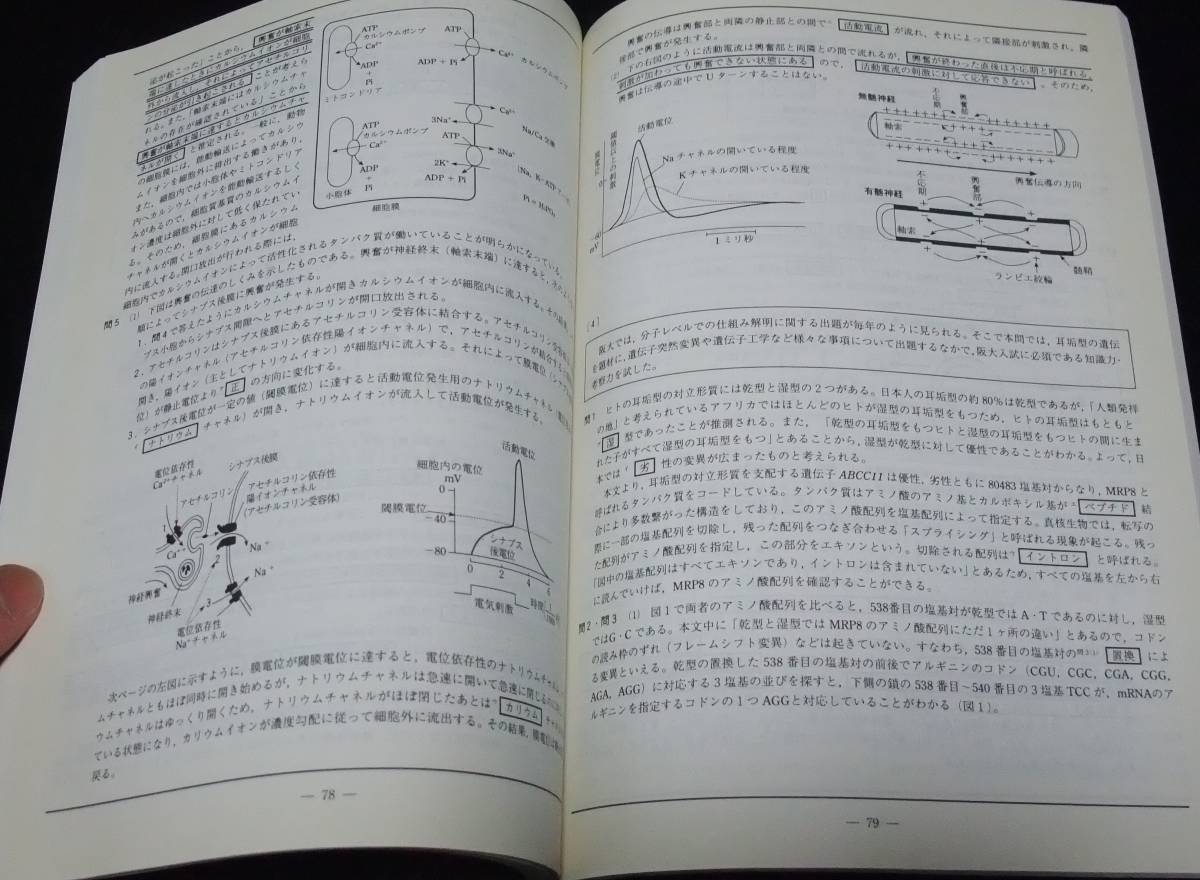 泌が起こった」ことから，興奮が軸索末
端に達したときにカルシウムイオンが細胞
外から流入し，それによってアセチルコリ
ンの分泌が引き起こされることが考えら
れる。また，「軸索末端にはカルシウムチャ
ネルの存在が確認されている」ことから
興奮が軸索末端に達するとカルシウムチャ
ネルが開くと推定される。一般に，動物
の細胞膜には，能動輸送によってカルシウ
ムイオンを細胞外に排出する働きがあり，
また，細胞内では小胞体やミトコンドリア
内へカルシウムイオンを能動輸送するしく
みがあるので，細胞質基質のカルシウムイ
オン濃度は細胞外に対して低く保たれてい
る。そのため，細胞膜にあるカルシウム
チャネルが開くとカルシウムイオンが細胞
内に流入する。開口放出が行われる際には，
細胞内でカルシウムイオンによって活性化されるタンパク質が働いていることが明らかになっている。
ATP
カルシウムポンプ
Ca²⁺
ADP
+
Pi
ミトコンドリア
ATP
カルシウムポンプ
Ca²⁺
ADP
+
Pi
小胞体
細胞膜
ATP
Ca²⁺ カルシウムポンプ
ADP + Pi
Ca²⁺
3Na⁺
Na/Ca 交換
ATP
3Na⁺
2K⁺
ADP + Pi
Pi = H₃PO₄
問5 (1) 下図は興奮の伝達のしくみを示したものである。興奮が神経終末（軸索末端）に達すると，
順によってシナプス後膜に興奮が発生する。
1．問4で答えたようにカルシウムチャネルが開きカルシウムイオンが細胞内に流入する。その結果，
プス小胞からシナプス間隙へとアセチルコリンが開口放出される。
2．アセチルコリンはシナプス後膜にあるアセチルコリン受容体に結合する。アセチルコリン受容体
の陽イオンチャネル（アセチルコリン依存性陽イオンチャネル）で，アセチルコリンが結合する
開き，陽イオン（主としてナトリウムイオン）が細胞内に流入する。それによって膜電位（シナプス
位）が静止電位より 正 の方向に変化する。
3．シナプス後電位が一定の値（閾膜電位）に達すると活動電位発生用のナトリウムチャネル
ナトリウム チャネル）が開き，ナトリウムイオンが流入して活動電位が発生する。
電位依存性
Ca²⁺チャネル
シナプス後膜
アセチルコリン
アセチルコリン依存性
陽イオンチャネル
(アセチルコリン受容体)
1
Ca⁺
Na⁺
2
Na⁺
3
神経興奮
神経終末
電位依存性
Na⁺チャネル
細胞内の電位
mV
活動電位
0
閾膜電位
−40
シナプス
後電位
−80
0 2 4 6
電気刺激
時間
次ページの左図に示すように，膜電位が閾膜電位に達すると，電位依存性のナトリウムチャネル
ムチャネルともほぼ同時に開き始めるが，ナトリウムチャネルは急速に開いて急速に閉じるのに
ウムチャネルはゆっくり開くため，ナトリウムチャネルがほぼ閉じたあとは カリウム チャネル
ている状態になり，カリウムイオンが濃度勾配に従って細胞外に流出する。その結果，膜電位は
戻る。
— 78 —
興奮の伝導は興奮部と両隣の静止部との間で 活動電流 が流れ，それによって隣接部が刺激され，隣
接部で興奮が発生する。
(2) 下の右図のように活動電流は興奮部と両隣との間で流れるが，興奮が終わった直後は不応期と呼ばれる。
刺激が加わっても興奮できない状態にある ので，活動電流の刺激に対して応答できない。そのため，
興奮は伝導の途中でUターンすることはない。
活動電位
Naチャネルの開いている程度
Kチャネルの開いている程度
膜電位
閾値以上の刺激
0
−60
mV
1ミリ秒
無髄神経
不応期
興奮部
軸索
興奮伝導の方向
有髄神経
不応期
興奮部
軸索
ランビエ絞輪
髄鞘
〔4〕
阪大では，分子レベルでの仕組み解明に関する出題が毎年のように見られる。そこで本問では，耳垢型の遺伝
を題材に，遺伝子突然変異や遺伝子工学など様々な事項について出題するなかで，阪大入試に必須である知識力・
考察力を試した。
問1 ヒトの耳垢型の対立形質には乾型と湿型の2つがある。日本人の耳垢型の約80％は乾型であるが，「人類発祥
の地」と考えられているアフリカではほとんどのヒトが湿型の耳垢型をもつため，ヒトの耳垢型はもともと
湿 型であったことが推測される。また，「乾型の耳垢型をもつヒトと湿型の耳垢型をもつヒトの間に生ま
れた子がすべて湿型の耳垢型をもつ」とあることから，湿型が乾型に対して優性であることがわかる。よって，日
本では 劣 性の変異が広まったものと考えられる。
本文より，耳垢型の対立形質を支配する遺伝子ABCC11は優性，劣性ともに80483塩基対からなり，MRP8と
呼ばれるタンパク質をコードしている。タンパク質はアミノ酸のアミノ基とカルボキシル基が ペプチド 結
合により多数繋がった構造をしており，このアミノ酸配列を塩基配列によって指定する。真核生物では，転写の
際に一部の塩基配列を切除し，残った配列をつなぎ合わせる「スプライシング」と呼ばれる現象が起こる。残っ
た配列がアミノ酸配列を指定し，この部分をエキソンという。切除される配列は イントロン と呼ばれる。
「図中の塩基配列はすべてエキソンであり，イントロンは含まれていない」とあるため，すべての塩基を左から右
に読んでいけば，MRP8のアミノ酸配列を確認することができる。
問2・問3 (1) 図1で両者のアミノ酸配列を比べると，538番目の塩基対が乾型ではA・Tであるのに対し，湿型
ではG・Cである。本文中に「乾型と湿型ではMRP8のアミノ酸配列にただ1ヶ所の違い」とあるので，コドン
の読み枠のずれ（フレームシフト変異）などは起きていない。すなわち，538番目の塩基対の 問2(1) 置換 によ
る変異といえる。乾型の置換した538番目の塩基対の前後でアルギニンのコドン（CGU, CGC, CGA, CGG,
AGA, AGG）に対応する3塩基の並びを探すと，下側の鎖の538番目～540番目の3塩基TCCが，mRNAのア
ルギニンを指定するコドンの1つAGGと対応していることがわかる（図1）。
— 79 —